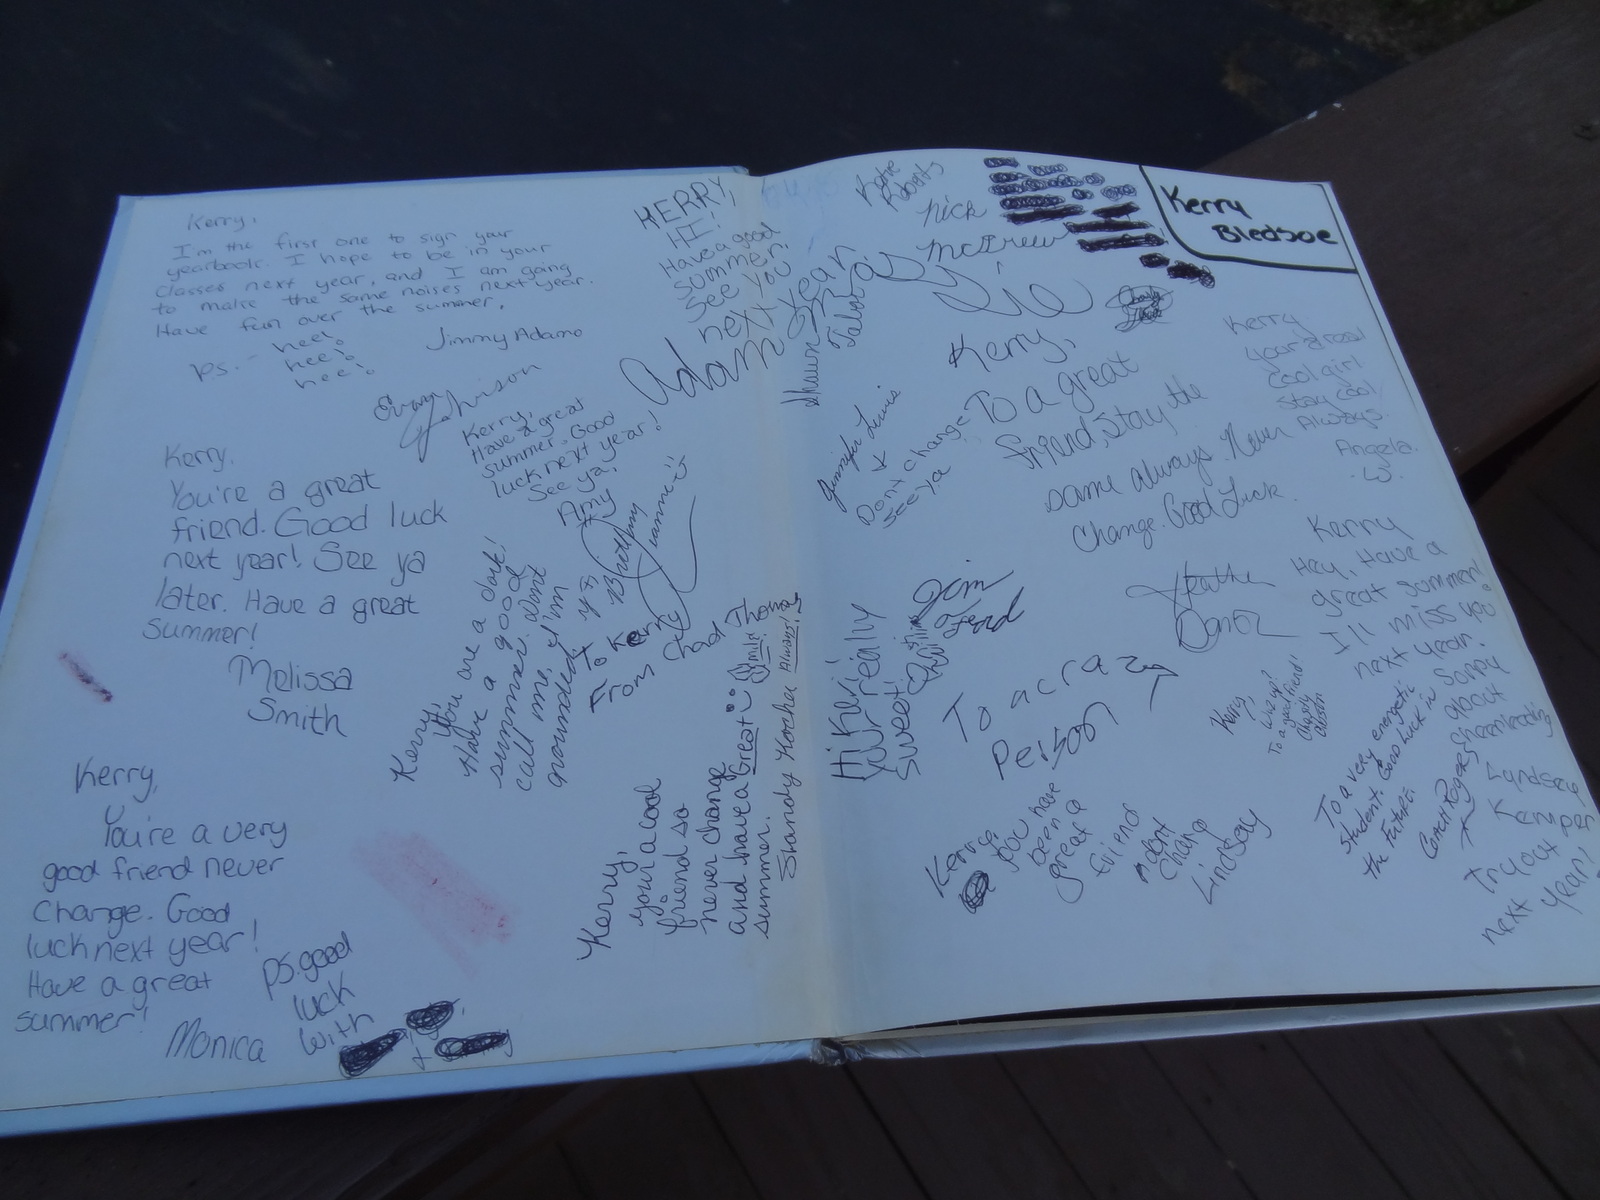 Kerry,
I'm the first one to sign your
yearbook. I hope to be in your
classes next year, and I am going
to make the same noises next year.
Have fun over the summer.
Jimmy Adamo
P.S. - hee!
hee!
hee!
Evan Johnson
Kerry,
You're a great
friend. Good luck
next year! See ya
later. Have a great
summer!
Melissa
Smith
Kerry,
You're a very
good friend never
change. Good
luck next year!
Have a great
summer!
Monica
P.S. good
luck
with
+
KERRY,
HI!
Have a good
summer!
See you
next year
Adam
Kerry,
Have a great
summer. Good
luck next year!
See ya,
Amy
Brittany
Kerry,
You are a dork!
Have a good
summer. Don't
call me, I'm
grounded!
To Kerry
From Chad Thomas
Kerry,
your a cool
friend so
never change
and have a Great
summer.
Shandy Kocha
Smile
Always!
Shawn
Talbot
Katie
Roberts
Nick
McGrew
Kerry
Bledsoe
Jennifer Lewis
Don't change
See ya
Kerry,
To a great
friend, Stay the
same always. Never
Change. Good Luck.
Heather
Kerry
your a real
cool girl
stay cool
Always.
Angela
Kerry
Hey, Have a
great summer!
I'll miss you
next year.
Sorry
about
cheerleading
Lyndsey
Kemper
Try out
next year!
Jim
Ford
Hi Kerry
your really
sweet!
To a crazy
Person
Kerry,
you have
been a
great
friend
don't
change
Lindsay
Kerry,
Line up?
To a great friend!
To a very energetic
student. Good Luck in
the Future.
Coach Rogers